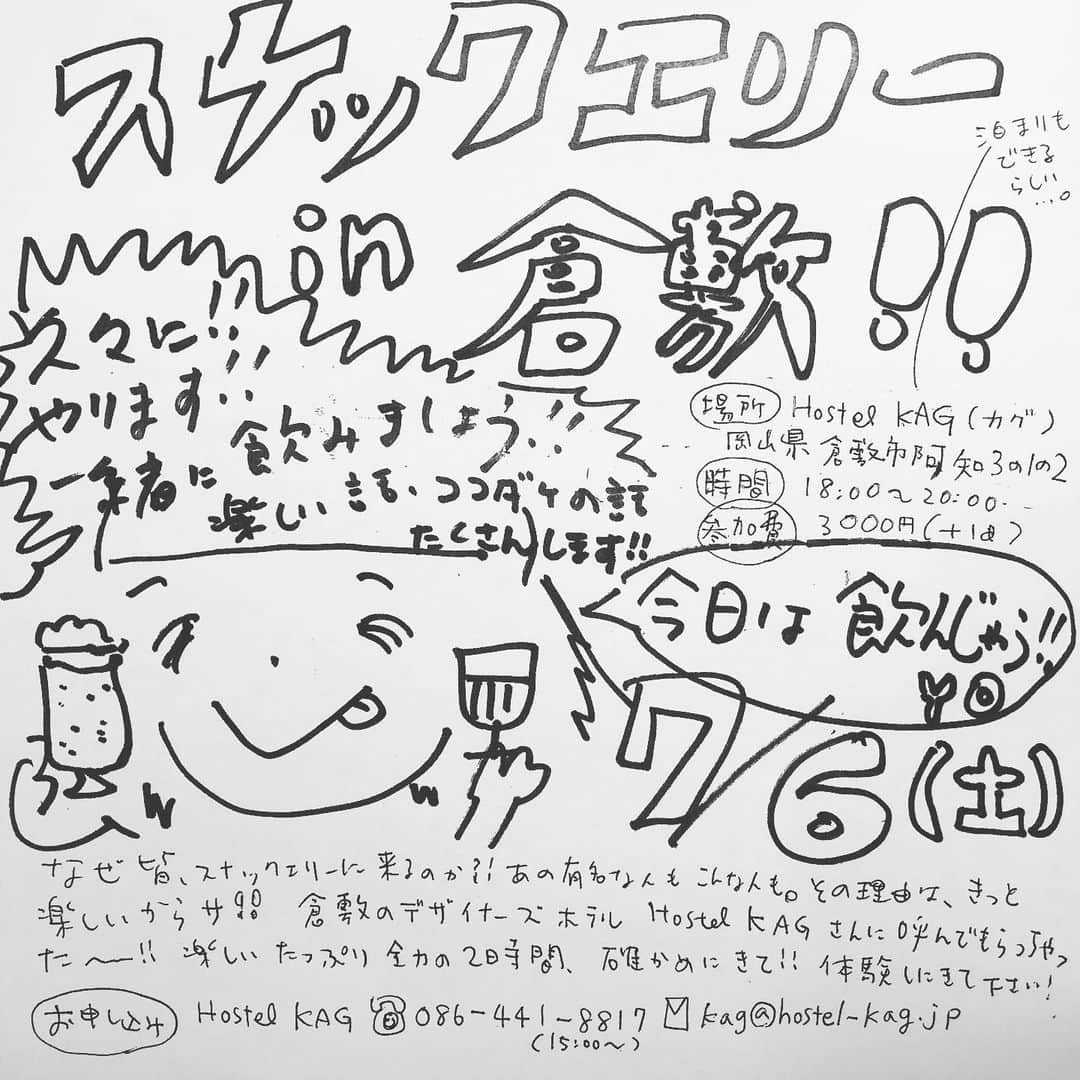 スナックエリー
in 倉敷!!
泊まりも
できる
らしい...。
久々に!!
やります!!
一緒に飲みましょう!!
楽しい話、ココダケの話
たくさんします!!
場所 Hostel KAG(カグ)
岡山県倉敷市阿知3の1の2
時間 18:00〜20:00...
参加費 3000円(+1d)
今日は飲んじゃう!!
YO
7/6(土)
なぜ皆、スナックエリーに来るのか?!あの有名なんもこんなんも。その理由は、きっと
楽しいからサ!! 倉敷のデザイナーズホテル Hostel KAGさんに呼んでもらっちゃっ
た〜!! 楽しいたっぷり全力の2時間、確かめにきて!!体験しにきて下さい!
お申し込み Hostel KAG ☎086-441-8817 ✉kag@hostel-kag.jp
(15:00〜)